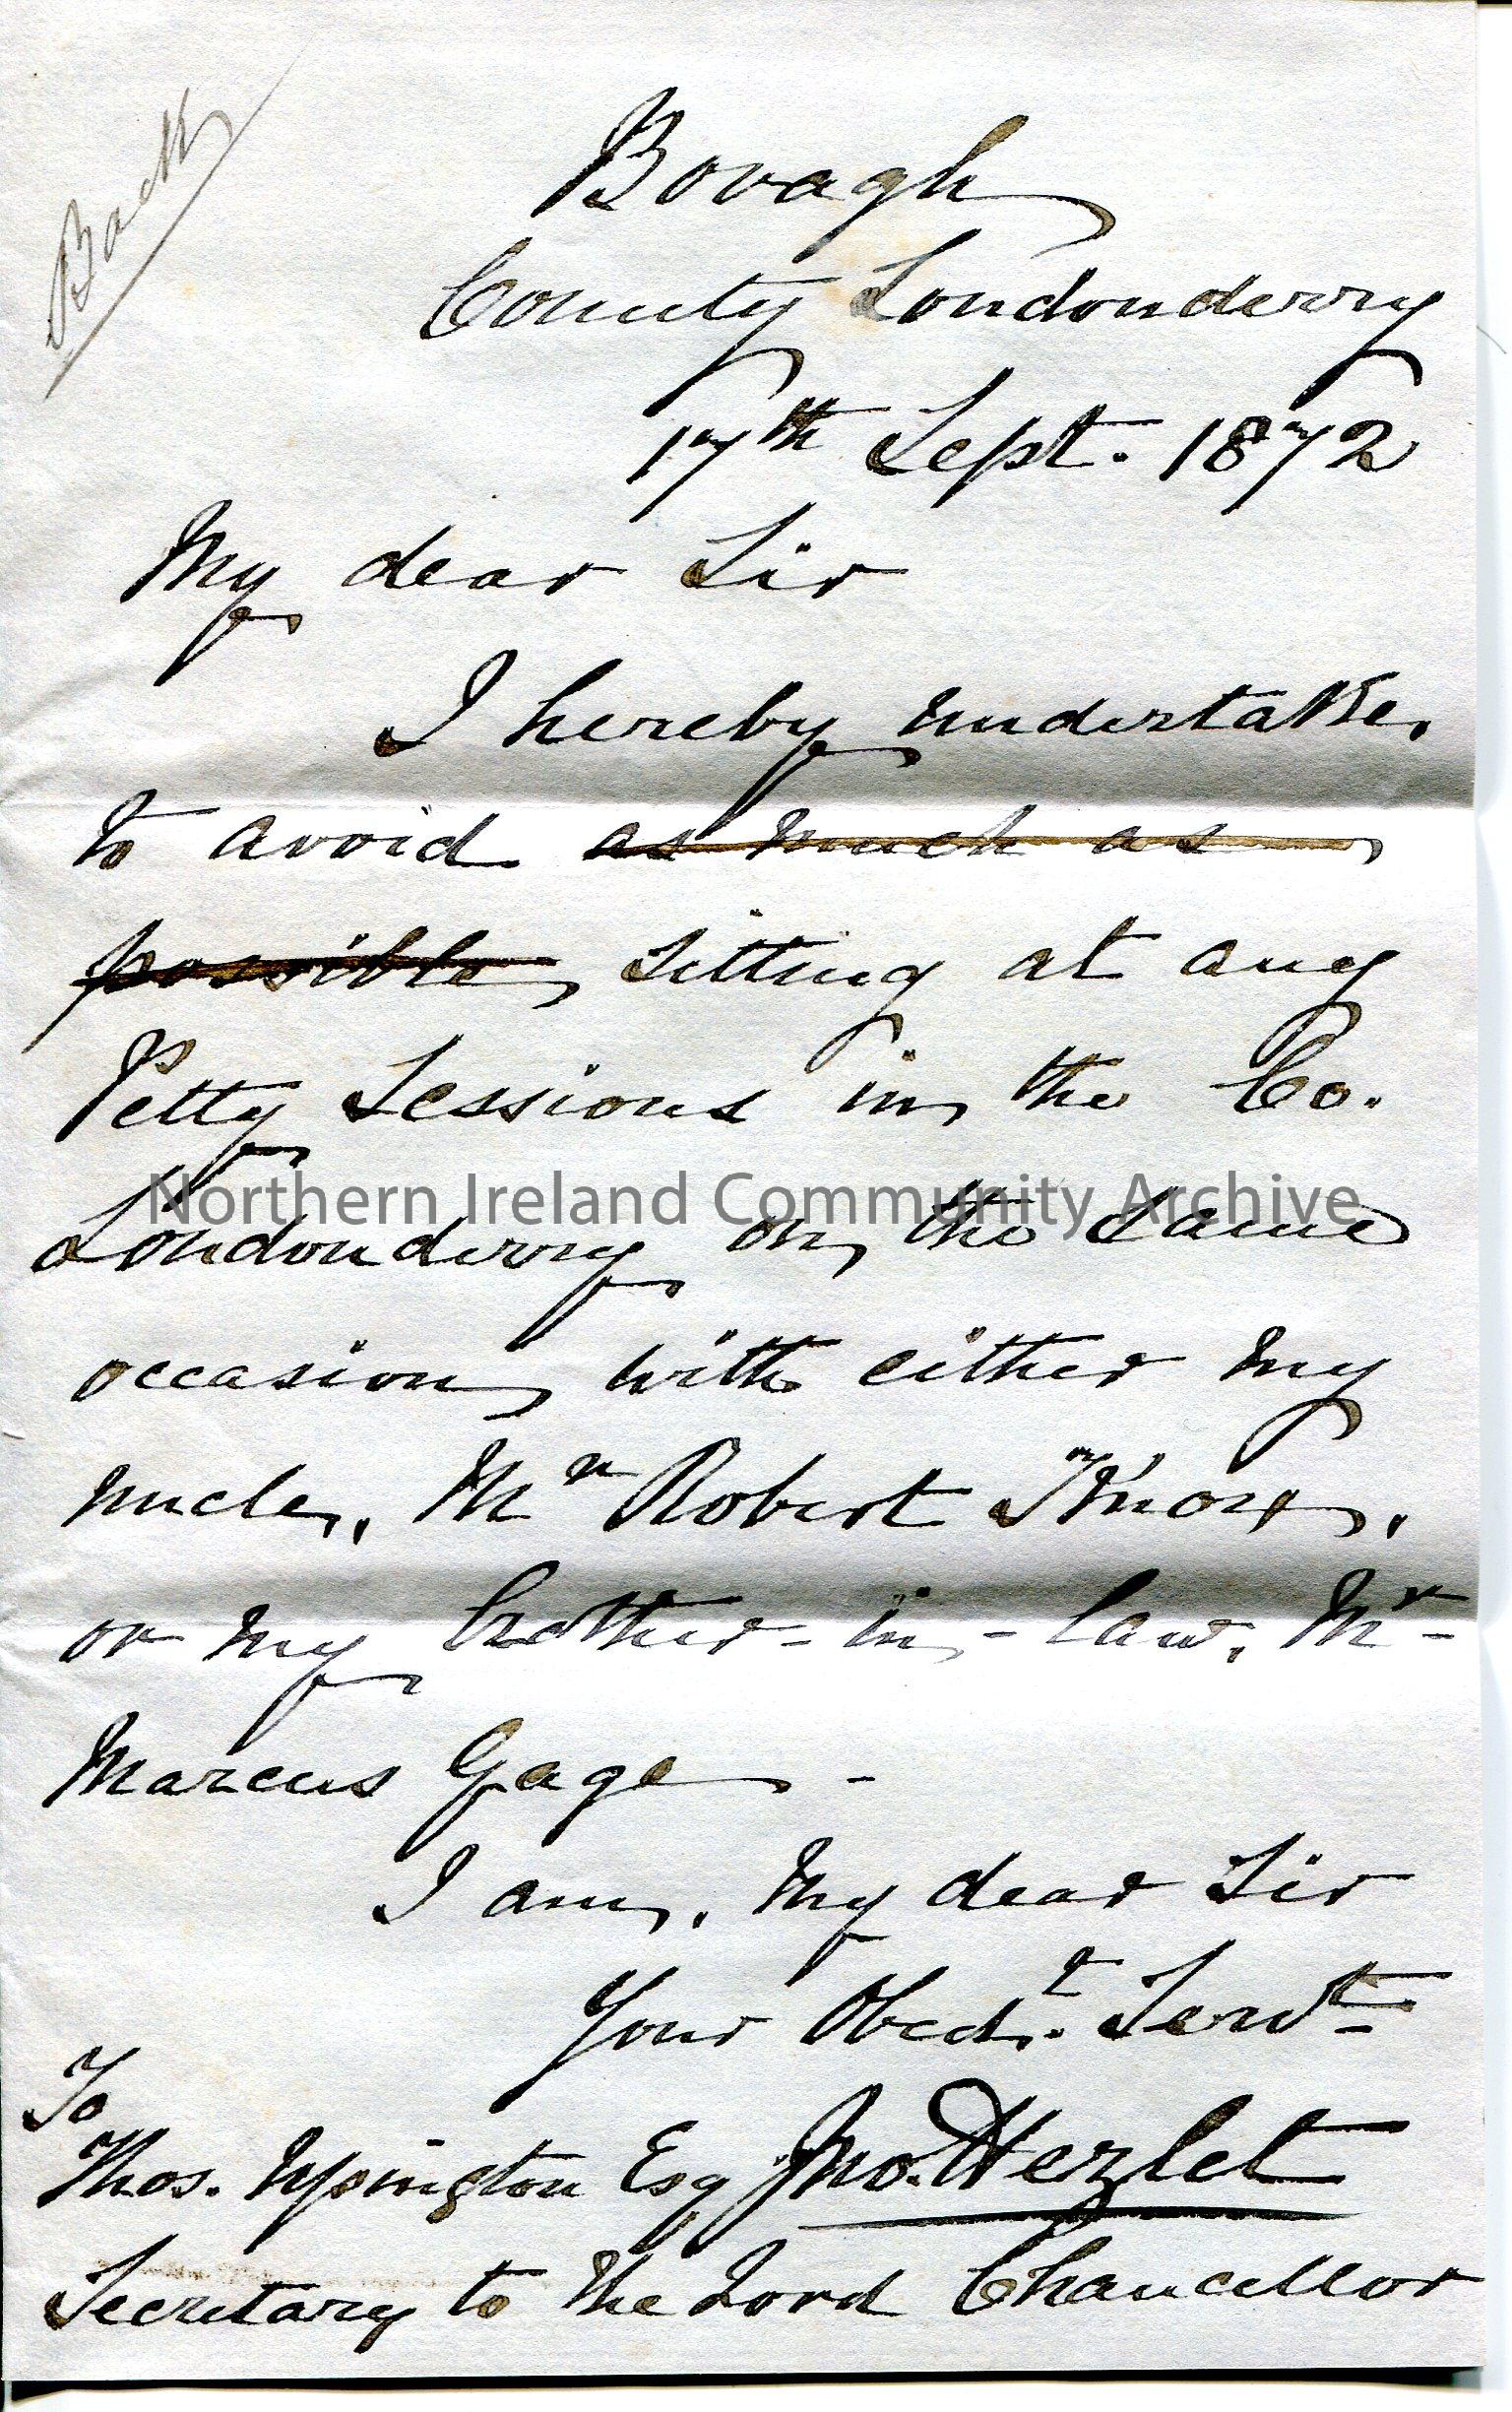 Back
Bovagh
County Londonderry
17th Sept. 1872
My dear Sir
I hereby undertake,
to avoid as much as
possible, sitting at any
Petty Sessions in the Co.
Londonderry on the same
Northern Ireland Community Archive
occasion with either my
uncle, Mr Robert Knox,
or my brother-in-law, Mr-
Marcus Gage -
I am, my dear Sir
Your Obedt. Servt-
To
Thos. Uppington Esq Jno. Hezlet
Secretary to the Lord Chancellor